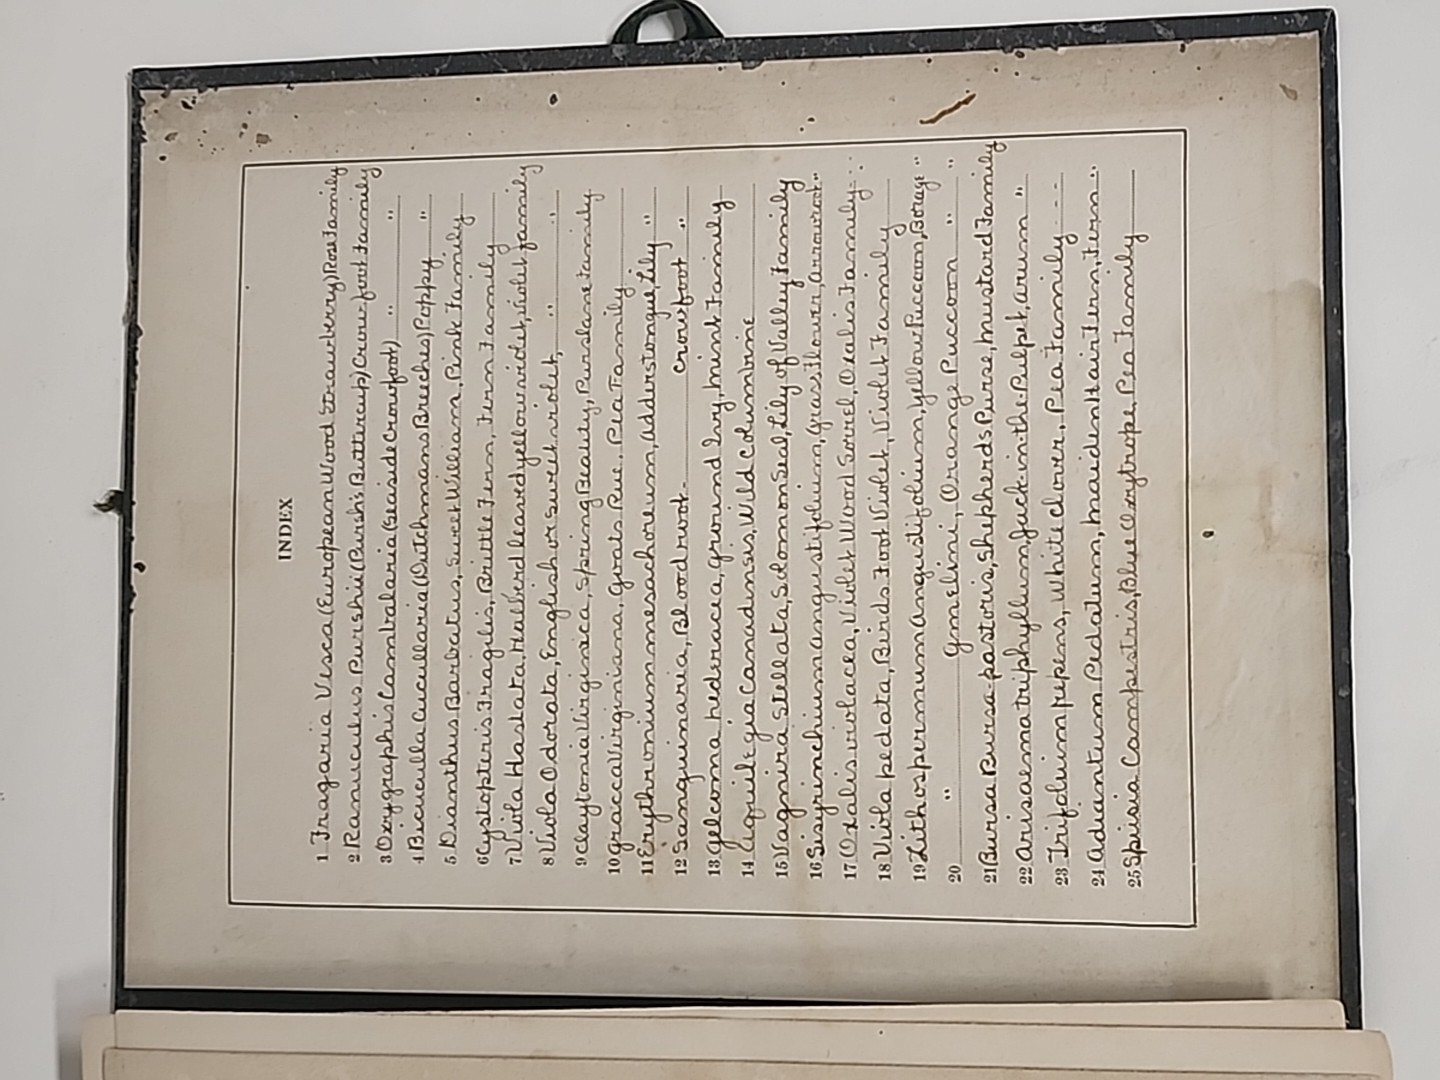 INDEX
1 Fragaria Vesca (European Wood Strawberry) Rose Family
2 Ranuculus Purshii (Pursh's Buttercup) Crowfoot Family
3 Oxygraphis Cambralaria (Seaside Crowfoot) " "
4 Bicuculla Cucullaria (Dutchmans Breeches) Poppy "
5 Dianthus Barbatus, Sweet William, Pink Family
6 Cystopteris Fragilis, Brittle Fern, Fern Family
7 Viola Hastata, Halberd leaved yellow violet, violet family
8 Viola Odorata, English or sweet violet, " "
9 Claytonia Virginica, Spring Beauty, Purslane Family
10 Gracca Virginiana, Goats Rue, Pea Family
11 Erythronium mesachoreum, Adderstongue, Lily "
12 Sanquinaria, Bloodroot - Crowfoot "
13 Gelcoma hederacea, ground Ivy, mint Family
14 Aquilegia Canadinsis, Wild Columbine
15 Vagnira Stellata, Solomon Seal, Lily of Valley Family
16 Sisyrinchium angustifolium, grassflower, arrowroot "
17 Oxalis violacea, Violet Wood Sorrel, Oxalis Family
18 Viola pedata, Birds Foot Violet, Violet Family
19 Lithospermum angustifolium, Yellow Puccoon, Borage "
20 " Gmelini, Orange Puccoon " "
21 Bursa Bursa-pastoris, Shepherds Purse, mustard Family
22 Arisaema triphyllum, Jack-in-the-Pulpet, arum "
23 Trifoluim repens, White clover, Pea Family
24 Adiantum Pedatum, maiden Hair Fern, Fern "
25 Spiesia Campestris, Blue Oxytrope, Pea Family